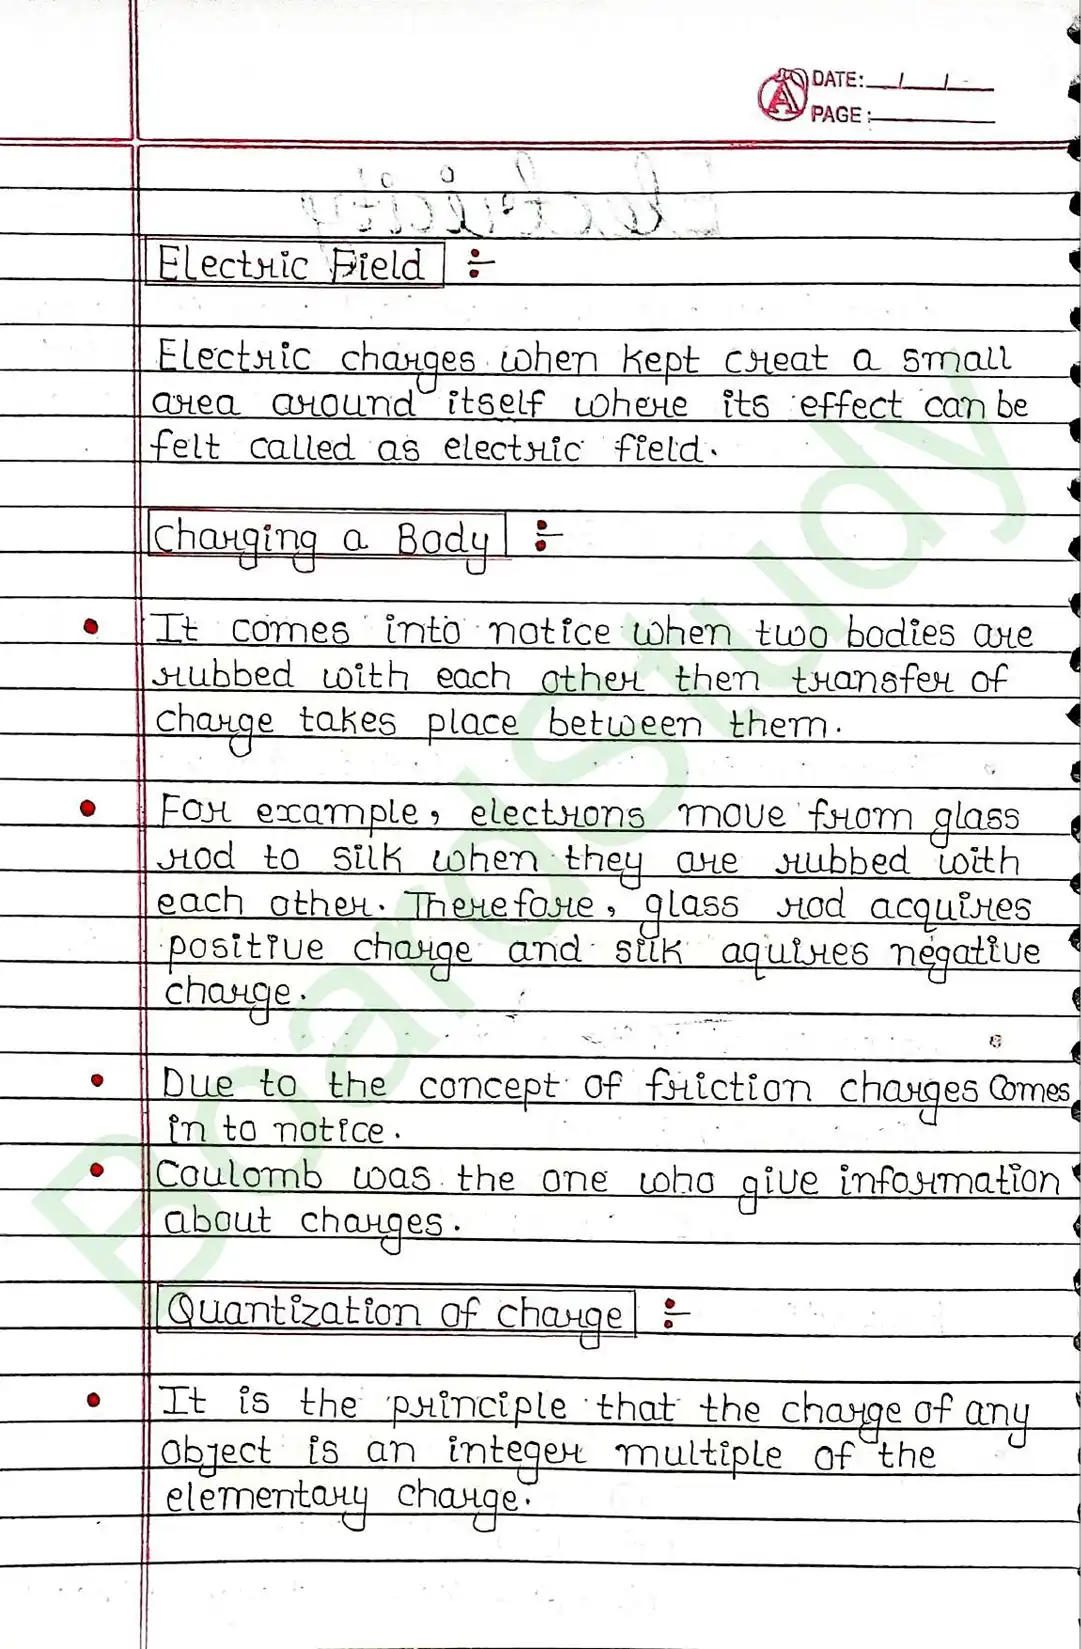 DATE: / /
PAGE:
Electricity
Electric Field :-
Electric charges when kept creat a small
area around itself where its effect can be
felt called as electric field.
Charging a Body :-
• It comes into notice when two bodies are
rubbed with each other then transfer of
charge takes place between them.
• For example, electrons move from glass
rod to silk when they are rubbed with
each other. Therefore, glass rod acquires
positive charge and silk aquires negative
charge.
• Due to the concept of friction charges comes
in to notice.
• Coulomb was the one who give information
about charges.
Quantization of charge :-
• It is the principle that the charge of any
object is an integer multiple of the
elementary charge.
BoardStudy